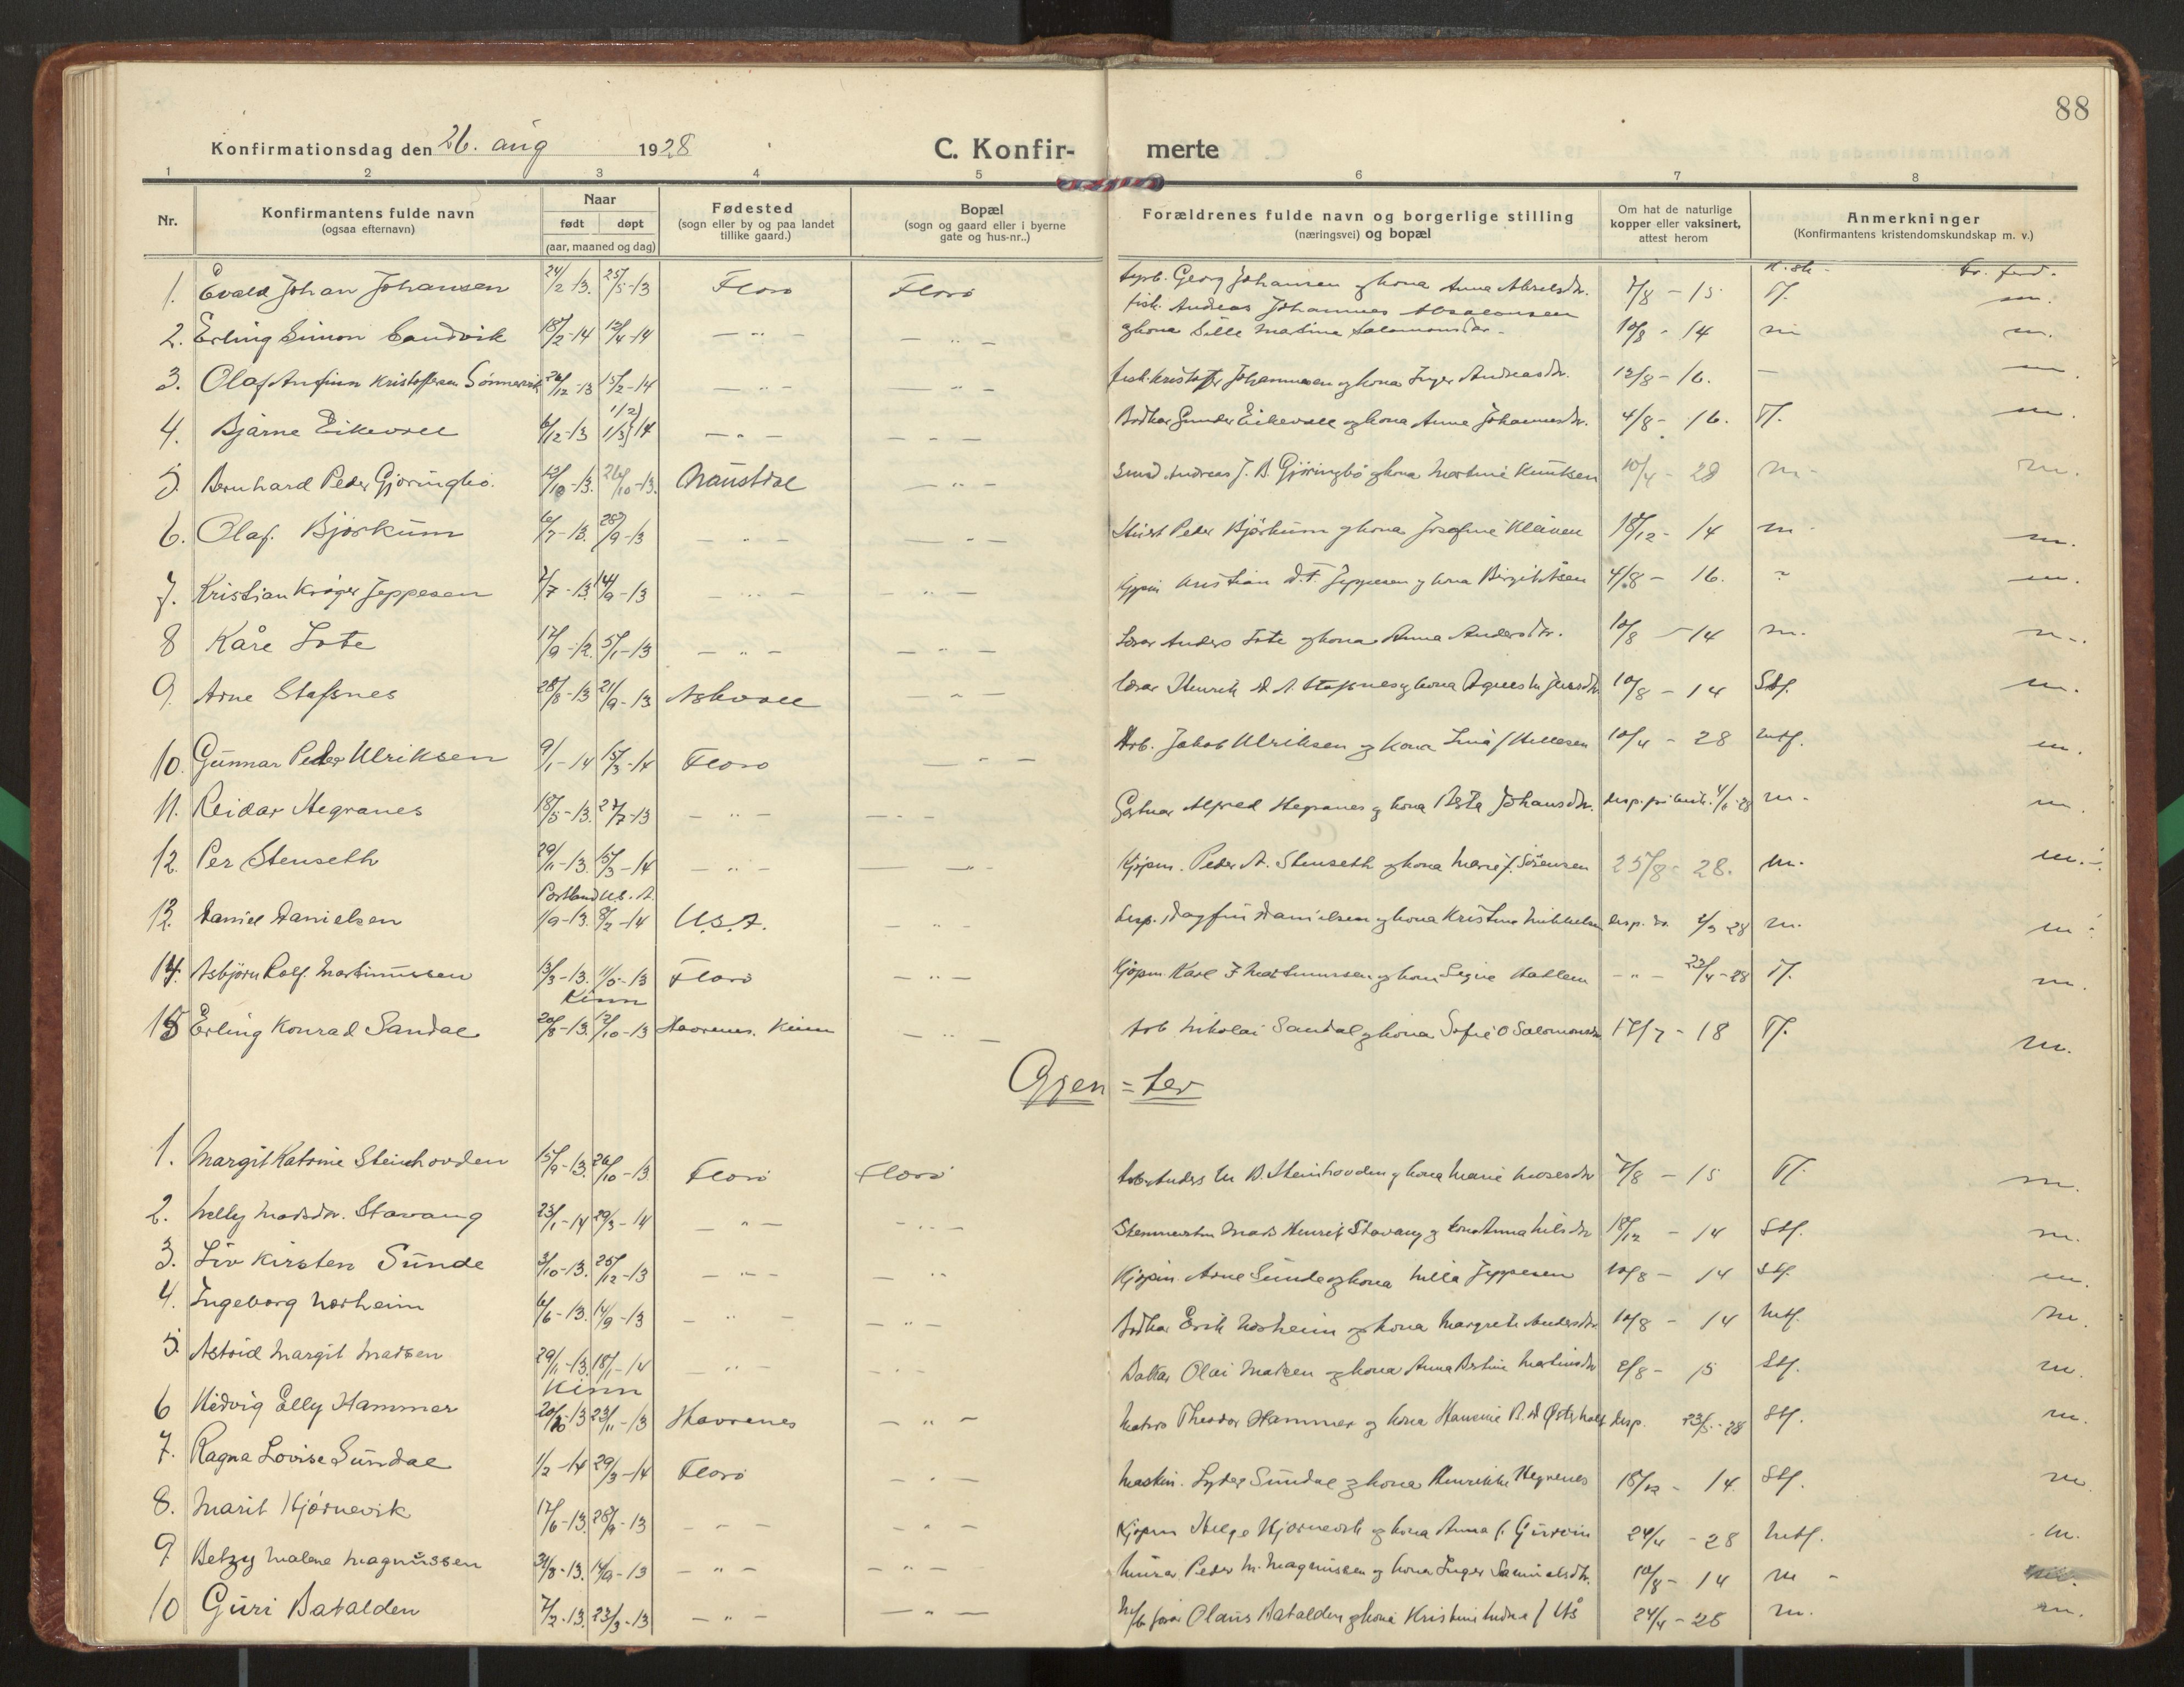 88
Konfirmationsdag den 26. aug 1928 C. Konfir- merte
1 2 3 4 5 6 7 8
Nr. Konfirmantens fulde navn (ogsaa efternavn) Naar født døpt (aar, maaned og dag) Fødested (sogn eller by og paa landet tillike gaard.) Bopæl (sogn og gaard eller i byerne gate og hus-nr..) Forældrenes fulde navn og borgerlige stilling (næringsvei) og bopæl Om hat de naturlige kopper eller vaksinert, attest herom Anmerkninger (Konfirmantens kristendomskundskap m. v.)
1. Evald Johan Johansen 24/2-13. 25/5-13 Florø Florø Georg Johansen og kona Anna 7/8 - 15 Tf. m.
2. Erling Simon Sandvik 18/2-14 13/4-14 — " — — " — fisk. Andreas Johannes Absalonsen og kona Sille Martine Salomonsdr. 10/8 - 14 m m.
3. Olaf Anfinn Kristoffersen 26/12-13 15/2-14 — " — — " — fisk. Kristoffer Johannesen og kona Inger Andreasdr. 12/8 - 16. — m.
4. Bjarne Eikevoll 6/12-13 1/2 1/3 14 — " — — " — Gunder Eikevoll og kona Anna Johannesdr. 4/8 - 16. Tf. m.
5. Bernhard Peder Gjøringbø. 13/10-13. 26/10-13. Naustdal — " — Smed Andreas J. B. Gjøringbø og kona Martine Knutsen 10/4 - 28 m - m.
6. Olaf Bjørkum 6/7-13. 28/9-13 — " — — " — Peder Bjørkum og kona Josefine Kleiven 18/12 - 14 m m.
7. Kristian Krøger Jeppesen 7/7-13. 14/9-13 — " — — " — Kjøpm Kristian D. F. Jeppesen og kona Birgit 4/8 - 16. " m.
8 Kåre Lote 17/9-12. 5/1-13 — " — — " — Lærer Anders Lote og kona Anna Andersdr. 10/8 - 14 m. m.
9. Arne Stafsnes 28/8-13 21/9-13 Askvoll — " — Lærer Henrik A. Stafsnes og kona Agnes 10/8 - 14 Stf. m.
10. Gunnar Peder Ulriksen 9/1-14 15/3-14 Florø — " — Arb. Jakob Ulriksen og kona Lina f. Hillesen 10/4 - 28 Mtf. m.
11. Reidar Hegranes 18/5-13. 27/7-13 — " — — " — Gartner Alfred Hegranes og kona Johansdr. m. m.
12. Per Stenseth 29/11-13. 15/3-14 — " — — " — Kjøpm. Peder A. Stenseth og kona Marie f. Sørensen 25/8 - 28. m. m.
Portland U.S.A.
13. Daniel Danielsen 1/9-13. 8/2-14 U.S.A. — " — Disp. Dagfin Danielsen og kona Kristine 28 m. m.
14. Asbjørn Rolf Martinussen 13/3-13. 11/5-13 Florø — " — Kjøpm Karl J. Martinussen og kona Signe — " — 23/4-28 Tf. m.
Kinn
15 Erling Konrad Sandal 20/8-13. 12/10-13 Havrenes. Kinn — " — Arb Nikolai Sandal og kona Sofie O Salomonsdr 17/7 - 18 Tf. m.
Gjen = ter
1. Margit Katrine Steinhovden 15/9-13. 26/10-13 Florø Florø Anders M B. Steinhovden og kona Marie Mosesdr 7/8 - 15 Tf m.
2. Nelly Madsdr. Stavang 23/1-14 29/3-14 — " — — " — Mads Henrik Stavang og kona Anna Nilsdr 18/12 - 14 Stf. m.
3. Liv Kirsten Sunde 3/10-13. 25/12-13 — " — — " Kjøpm. Arne Sunde og kona Milla Jeppesen 10/8 - 14 Stf. m.
4. Ingeborg Norheim 6/6-13. 14/9-13 — " — — " — Erik Norheim og kona Margrete Andersdr 10/8 - 14 Mtf. m.
5. Astrid Margit Madsen 29/11-13. 18/1-14 — " — — " — Olai Madsen og kona Anna Bertine Martinsdr 2/8 - 15 Stf. m.
Kinn
6 Hedvig Elly Hammer 20/10-13 23/11-13 Havrenes — " — Theodor Hammer og kona Disp. 23/5-28 Stf. m.
7. Ragna Lovise Sundal 1/2-14 29/3-14 Florø — " — Maskin. Lyder Sundal og kona Henrikke Hegrenes 18/12 - 14. Stf. m
8. Marit Hjørnevik 17/6-13. 28/9-13 — " — — " — Kjøpm Helge Hjørnevik og kona Anna f. 24/4 - 28 Mtf. m.
9 Betzy Malene Magnussen 31/8-13. 14/9-13 — " — — " — Murer Peder M. Magnussen og kona Inger Samuelsdr. 10/8 - 14 m -
10 Guri Batalden 7/2-13. 23/3-13 — " — — " — Olaus Batalden og kona Kristine 24/4-28 m. m.